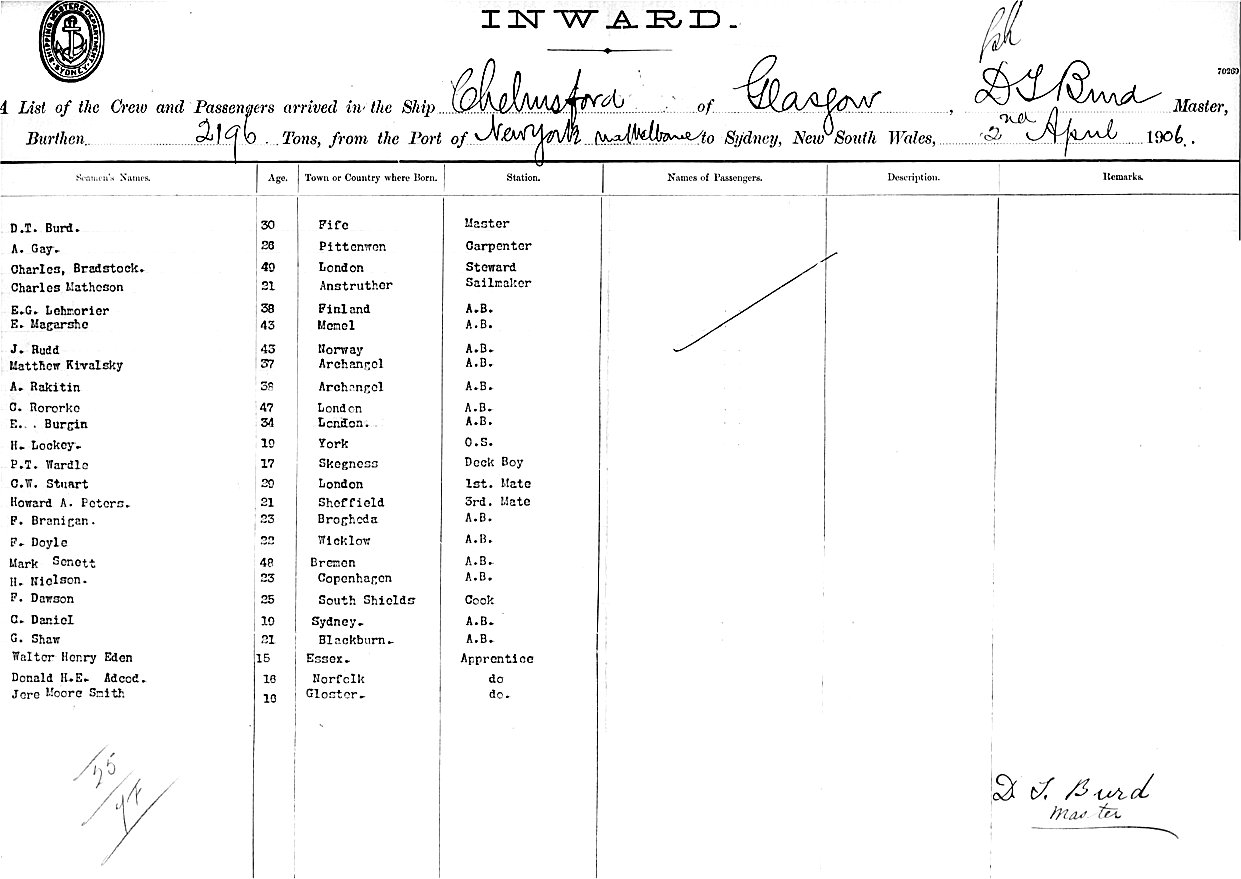 SHIPPING MASTERS DEPARTMENT SYDNEY
INWARD.
70269
A List of the Crew and Passengers arrived in the Ship Chelmsford of Glasgow, D T Burd Master,
Burthen 2196 Tons, from the Port of New York via Melbourne to Sydney, New South Wales, 2nd April 1906.
Seamen's Names. Age. Town or Country where Born. Station. Names of Passengers. Description. Remarks.
D.T. Burd. 30 Fife Master
A. Gay. 26 Pittenwen Carpenter
Charles, Bradstock. 49 London Steward
Charles Matheson 21 Anstruther Sailmaker
E.G. Lehmorier 38 Finland A.B.
E. Magarshe 43 Memel A.B.
J. Rudd 43 Norway A.B.
Matthew Kivalsky 37 Archangel A.B.
A. Rakitin 38 Archangel A.B.
C. Rororke 47 London A.B.
E. Burgin 34 London. A.B.
H. Lockey. 19 York O.S.
P.T. Wardle 17 Skegness Deck Boy
C.W. Stuart 29 London 1st. Mate
Howard A. Peters. 21 Sheffield 3rd. Mate
F. Branigan. 23 Brogheda A.B.
F. Doyle 22 Wicklow A.B.
Mark Senett 48 Bremen A.B.
H. Nielson. 23 Copenhagen A.B.
F. Dawson 25 South Shields Cook
C. Daniel 19 Sydney. A.B.
G. Shaw 21 Blackburn. A.B.
Walter Henry Eden 15 Essex. Apprentice
Donald H.E. Adcod. 16 Norfolk do
Jere Moore Smith 16 Gloster. do.
25
D. T. Burd
Master